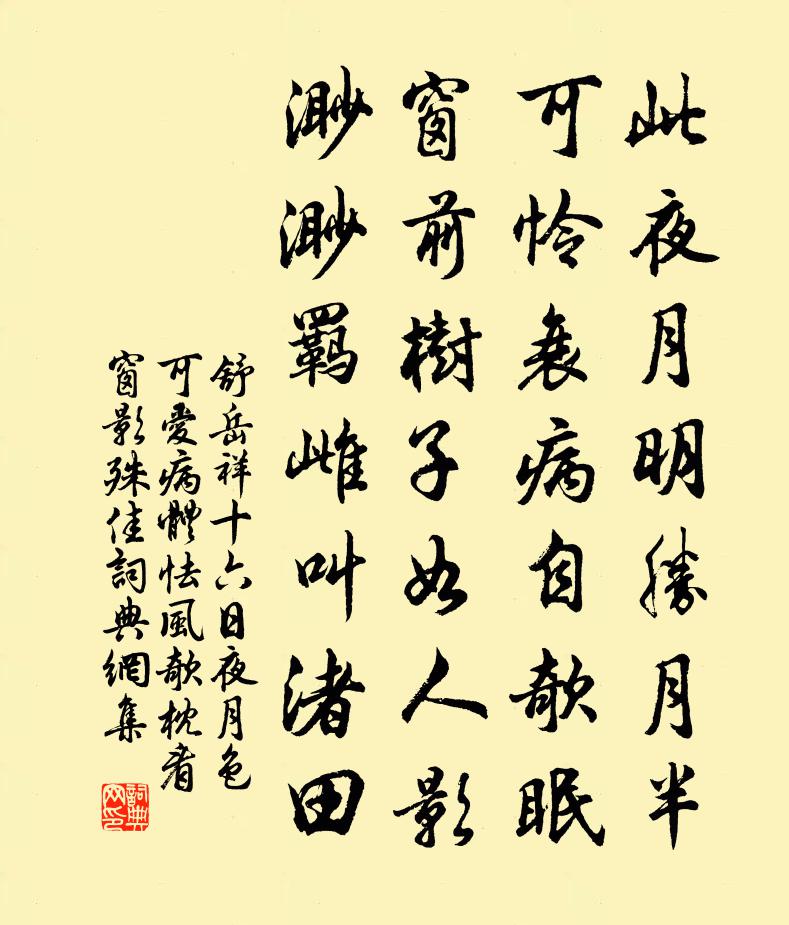 此夜月明勝月半
可怜衰病自欹眠
窗前樹子如人影
渺渺羈雌叫渚田
舒岳祥十六日夜月色
可愛病體怯風欹枕看
窗影殊佳詞典網集
詞典网印